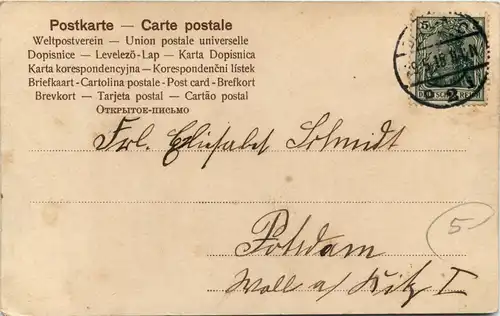 Postkarte — Carte postale
Weltpostverein — Union postale universelle
Dopisnice — Levelező-Lap — Karta Dopisnica
Karta korespondencyjna — Korespondenční lístek
Briefkaart - Cartolina postale - Post card - Brefkort
Brevkort — Tarjeta postal — Cartão postal
Открытое-письмо
5
DEUTSCHES REICH
2
Frl. Elisabet Schmidt
Potsdam
5
Wall a/ Kietz I